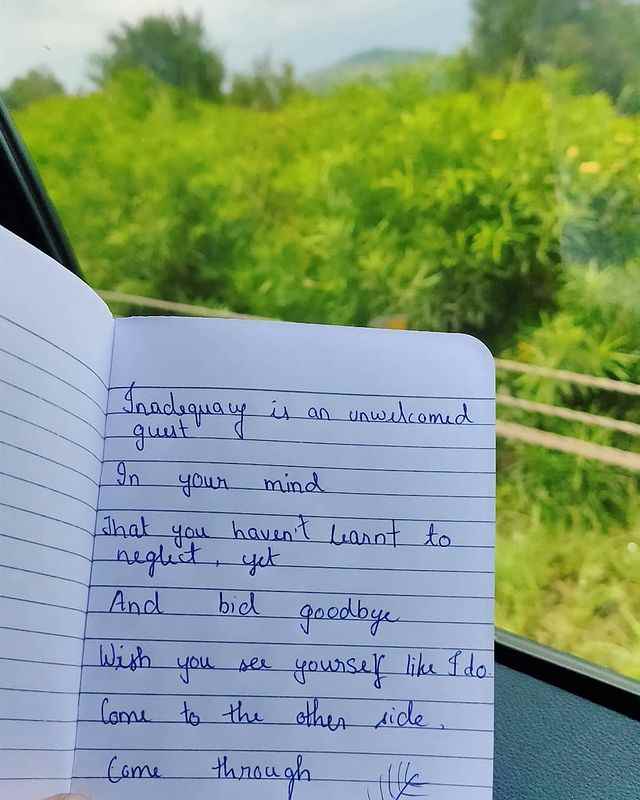 Inadequacy is an unwelcomed
guest
In your mind
That you haven't learnt to
neglect, yet
And bid goodbye
Wish you see yourself like I do
Come to the other side.
Come through